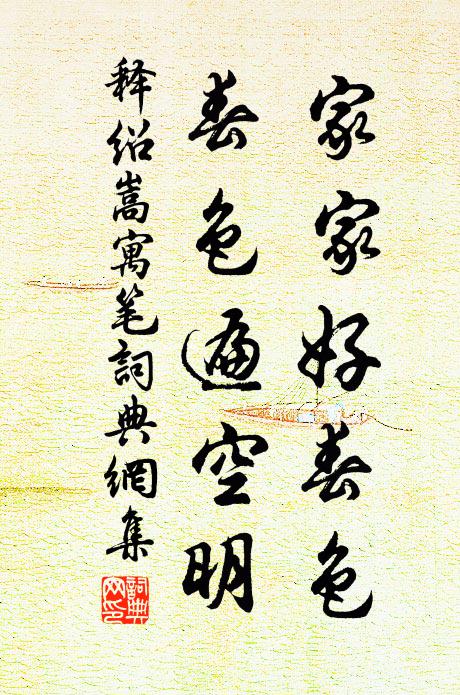 家家好春色
春色遍空明
释绍嵩寓笔詞典網集
詞典网印